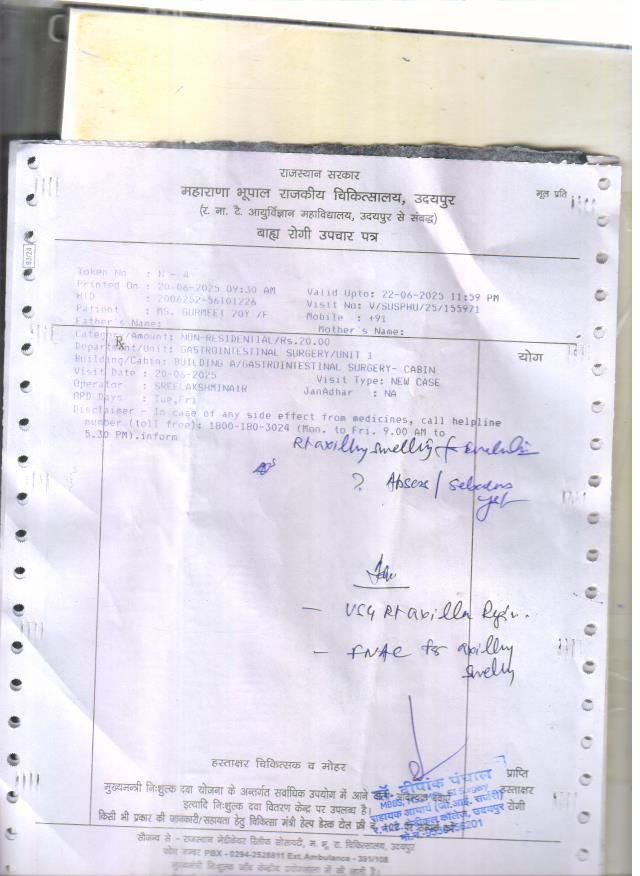 राजस्थान सरकार
महाराणा भूपाल राजकीय चिकित्सालय, उदयपुर
मूल प्रति
(र. ना. टै. आयुर्विज्ञान महाविद्यालय, उदयपुर से संबद्ध)
बाह्य रोगी उपचार पत्र
Token No : N - 4
Printed On : 20-06-2025 09:30 AM Valid Upto: 22-06-2025 11:59 PM
HID : 2006252-56101226 Visit No: V/SUSPHU/25/155971
Patient : MS. GURMEET 20Y /F Mobile : +91
Father's Name: Mother's Name:
Category/Amount: NON-RESIDENTIAL/Rs.20.00
Rx
योग
Department/Unit: GASTROINTESTINAL SURGERY/UNIT 1
Building/Cabin: BUILDING A/GASTROINTESTINAL SURGERY- CABIN
Visit Date : 20-06-2025 Visit Type: NEW CASE
Operator : SREELAKSHMINAIR JanAdhar : NA
OPD Days : Tue,Fri
Disclaimer - In case of any side effect from medicines, call helpline
number (toll free): 1800-180-3024 (Mon. to Fri. 9.00 AM to
5.30 PM).inform
Rt axillary swelling
? Abscess / Sebaceous
cyst
- USG Rt axilla Region.
- FNAC for axillary
swelling
हस्ताक्षर चिकित्सक व मोहर
डॉ. दीपांक पंचाल
प्राप्ति
हस्ताक्षर
रोगी
मुख्यमन्त्री निःशुल्क दवा योजना के अन्तर्गत सर्वाधिक उपयोग में आने
इत्यादि निःशुल्क दवा वितरण केन्द्र पर उपलब्ध है।
किसी भी प्रकार की जानकारी/सहायता हेतु चिकित्सा मंत्री हेल्प डेस्क टोल फ्री
सौजन्य से - राजस्थान मेडीकेयर रिलीफ सोसायटी, म. भू. रा. चिकित्सालय, उदयपुर
फोन नम्बर PBX - 0294-2528811 Ext. Ambulance - 391/108